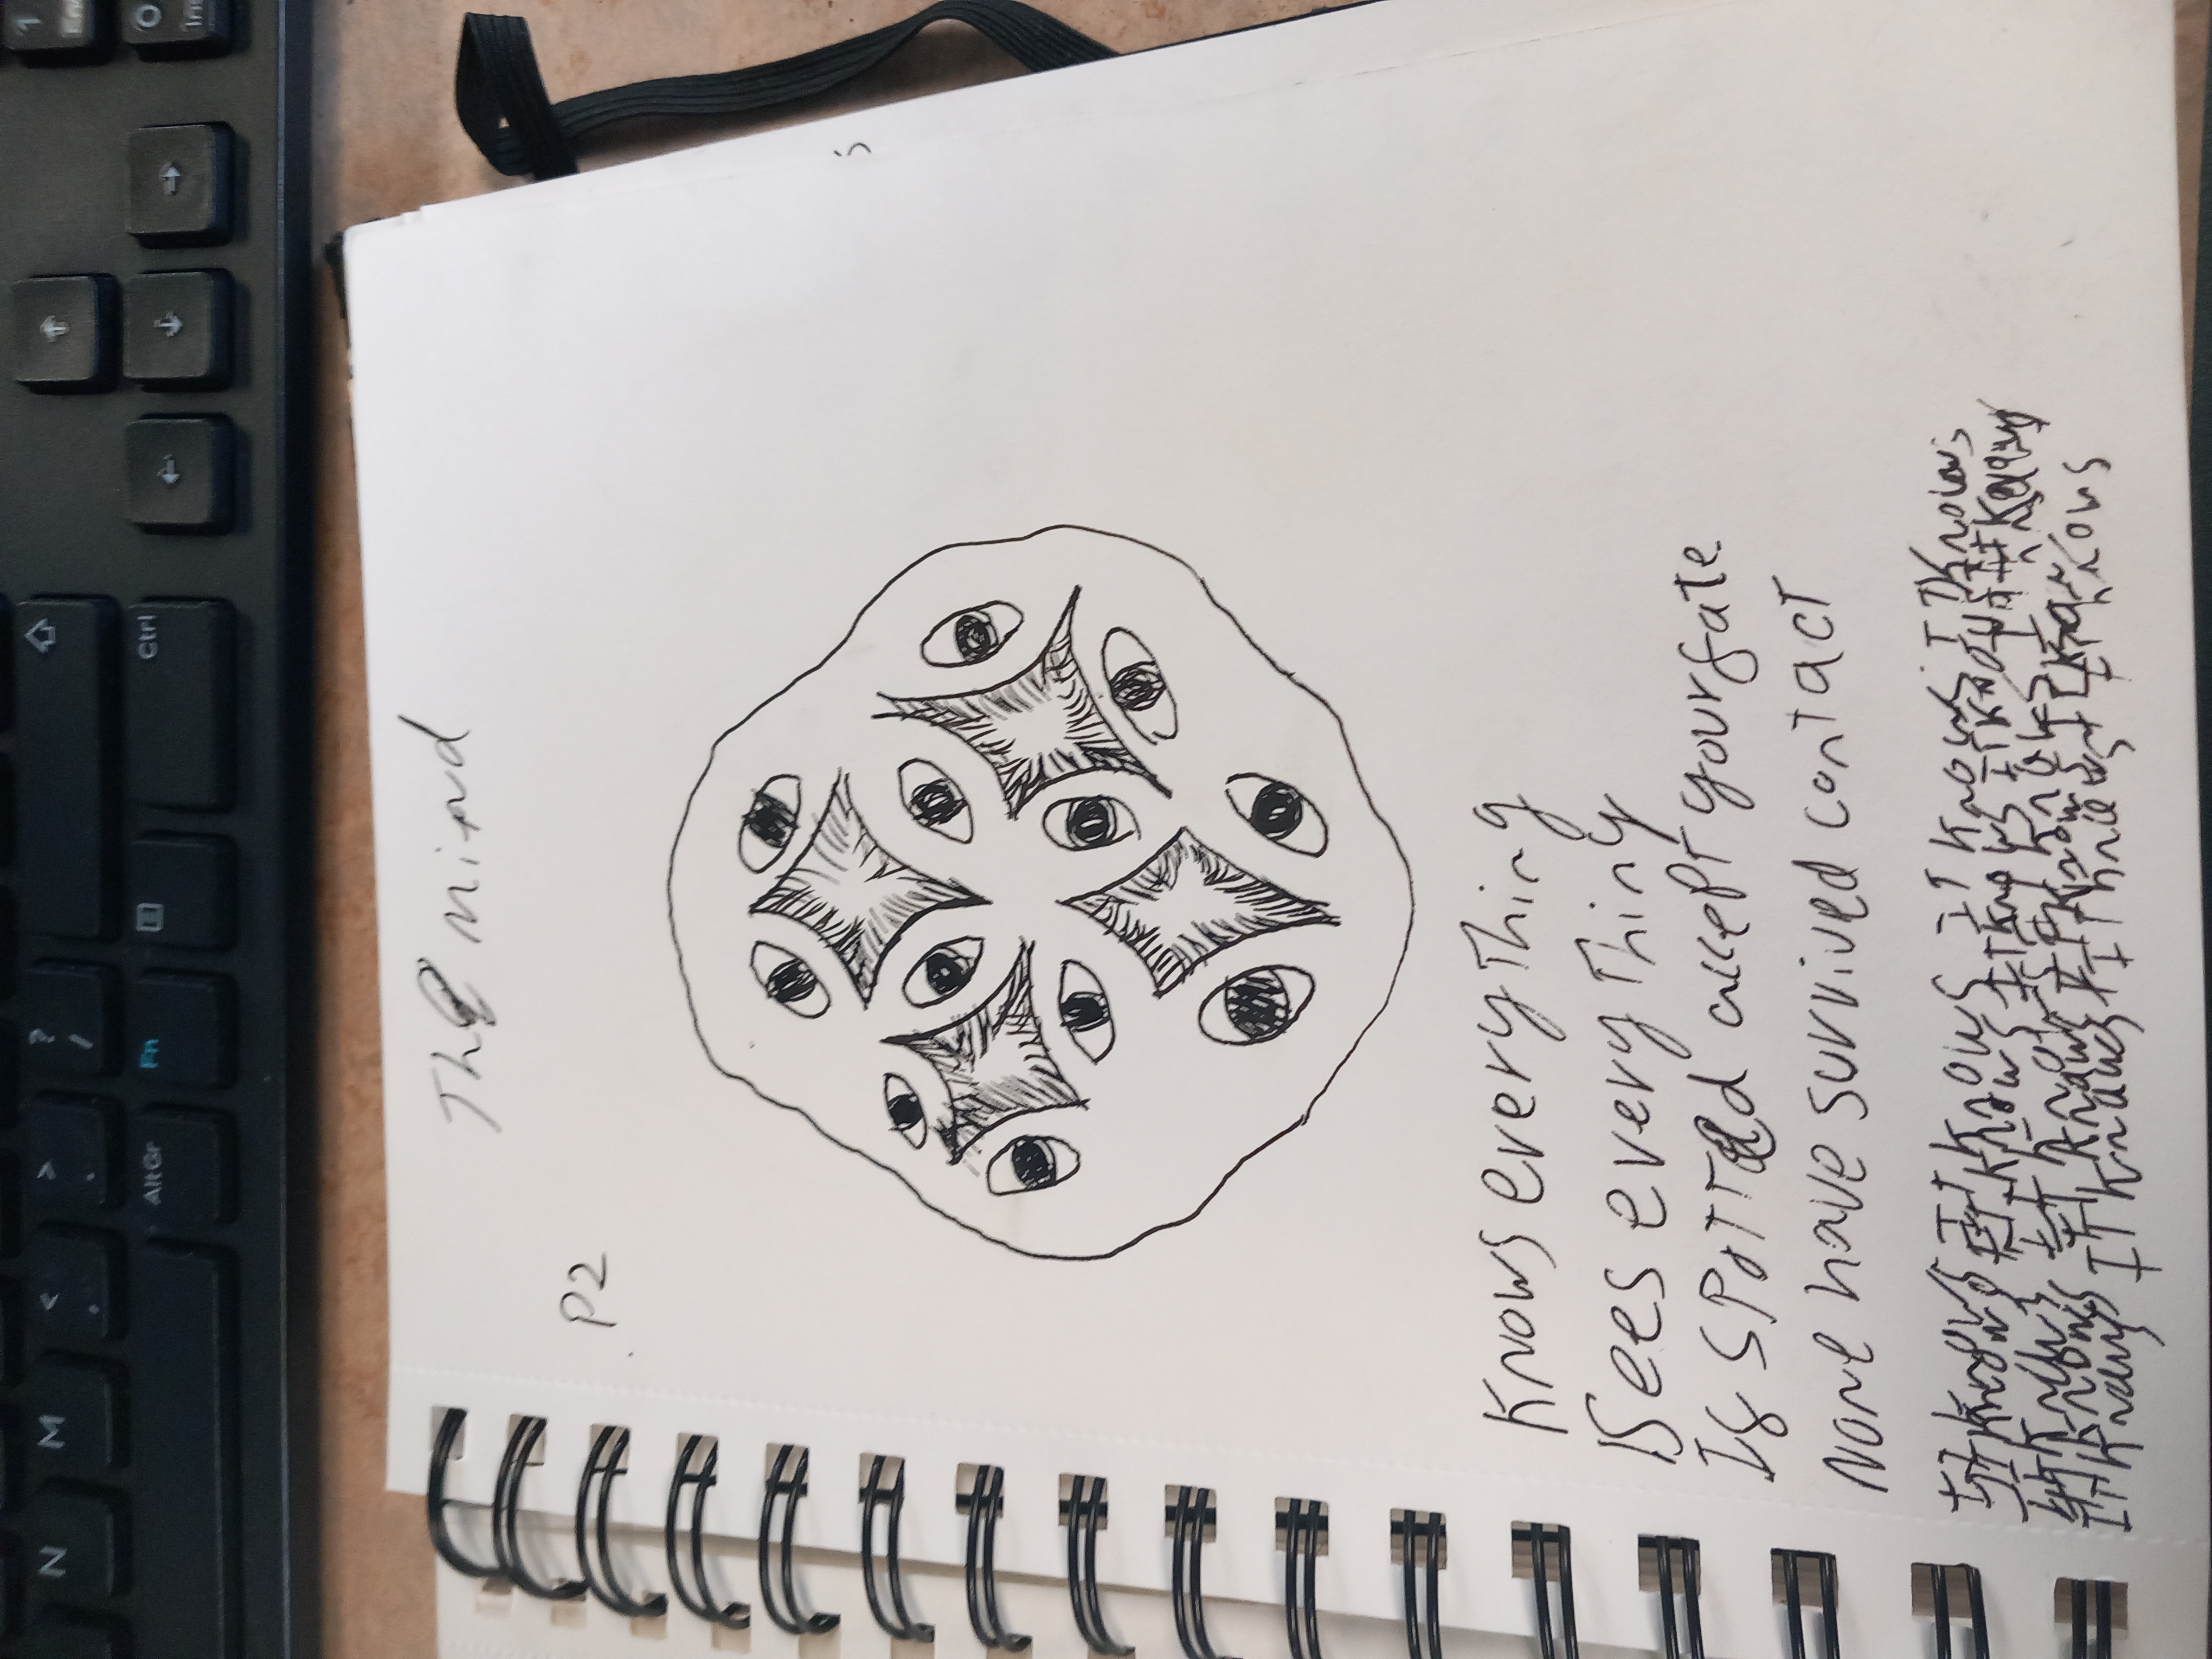 N M < > ? ⇧ ↑ 1
, . /
AltGr Fn Ctrl ← ↓ → 0
The mind
P2
Knows everything
Sees everything
If spotted accept your fate
None have survived contact
It knows It knows It knows It Knows
It knows It knows It knows It knows It
It knows It knows It knows It
It knows It knows It knows It
It knows It knows It knows It knows